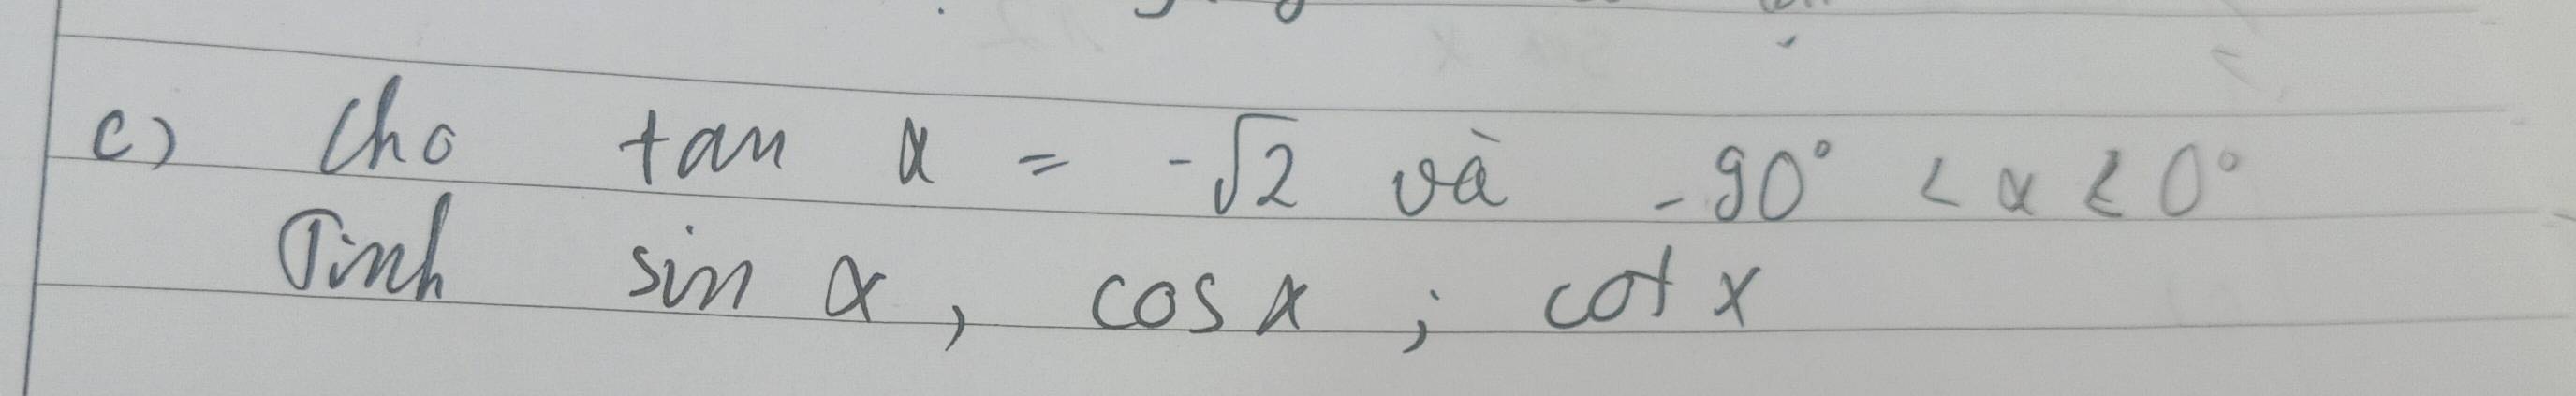 c) Cho tan α = -√2 và -90° < α < 0°
Tính sin α, cos α; cot x